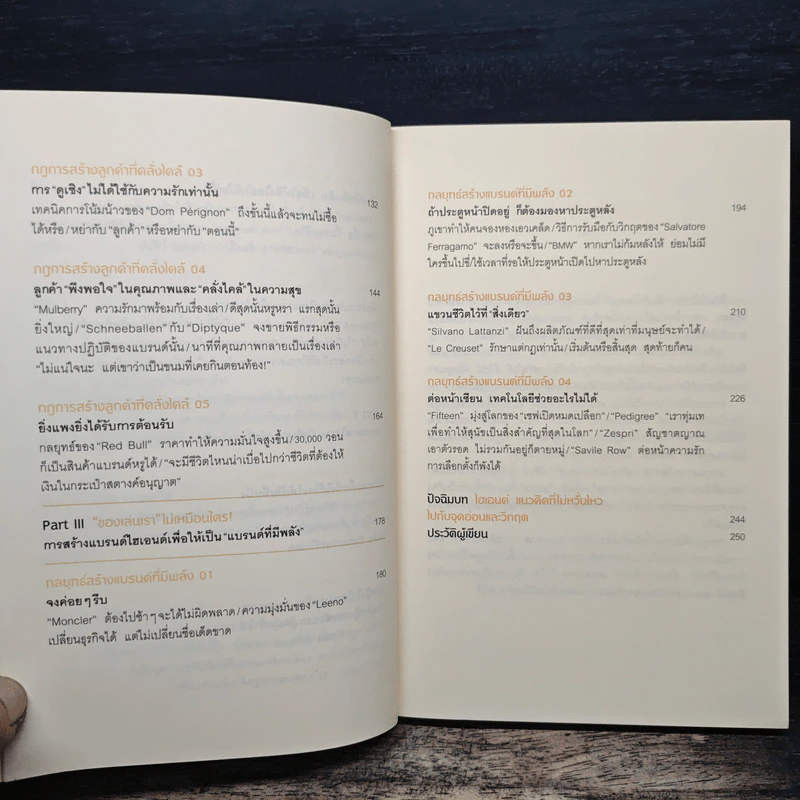 กฎการสร้างลูกค้าที่คลั่งไคล้ 03
การ "ดูเชิง" ไม่ได้ใช้กับความรักเท่านั้น 132
เทคนิคการโน้มน้าวของ "Dom Pérignon" ถึงขั้นนี้แล้วจะทนไม่ซื้อ
ได้หรือ/หย่ากับ "ลูกค้า" หรือหย่ากับ "ตอนนี้"
กฎการสร้างลูกค้าที่คลั่งไคล้ 04
ลูกค้า "พึงพอใจ" ในคุณภาพและ "คลั่งไคล้" ในความสุข 144
"Mulberry" ความรักมาพร้อมกับเรื่องเล่า/ดีสุดนั้นหรูหรา แรกสุดนั้น
ยิ่งใหญ่/"Schneeballen" กับ "Diptyque" จงขายพิธีกรรมหรือ
แนวทางปฏิบัติของแบรนด์นั้น/นาทีที่คุณภาพกลายเป็นเรื่องเล่า
"ไม่แน่ใจนะ แต่เขาว่าเป็นขนมที่เคยกินตอนท้อง!"
กฎการสร้างลูกค้าที่คลั่งไคล้ 05
ยิ่งแพงยิ่งได้รับการต้อนรับ 164
กลยุทธ์ของ "Red Bull" ราคาทำให้ความมั่นใจสูงขึ้น/30,000 วอน
ก็เป็นสินค้าแบรนด์หรูได้/"จะมีชีวิตไหนน่าเบื่อไปกว่าชีวิตที่ต้องให้
เงินในกระเป๋าสตางค์อนุญาต"
Part III "ของเล่นเรา" ไม่เหมือนใคร!
การสร้างแบรนด์ไฮเอนด์เพื่อให้เป็น "แบรนด์ที่มีพลัง" 178
กลยุทธ์สร้างแบรนด์ที่มีพลัง 01
จงค่อยๆ รีบ 180
"Moncler" ต้องไปช้าๆ จะได้ไม่ผิดพลาด/ความมุ่งมั่นของ "Leeno"
เปลี่ยนธุรกิจได้ แต่ไม่เปลี่ยนชื่อเด็ดขาด
กลยุทธ์สร้างแบรนด์ที่มีพลัง 02
ถ้าประตูหน้าปิดอยู่ ก็ต้องมองหาประตูหลัง 194
ภูเขาทำให้คนจองหองเอวเคล็ด/วิธีการรับมือกับวิกฤตของ "Salvatore
Ferragamo" จะลงหรือจะขึ้น/"BMW" หากเราไม่ก้มหลังให้ ย่อมไม่มี
ใครขึ้นไปขี่/ใช้เวลาที่รอให้ประตูหน้าเปิดไปหาประตูหลัง
กลยุทธ์สร้างแบรนด์ที่มีพลัง 03
แขวนชีวิตไว้ที่ "สิ่งเดียว" 210
"Silvano Lattanzi" ฝันถึงผลิตภัณฑ์ที่ดีที่สุดเท่าที่มนุษย์จะทำได้/
"Le Creuset" รักษาแต่กฎเท่านั้น/เริ่มต้นหรือสิ้นสุด สุดท้ายก็คน
กลยุทธ์สร้างแบรนด์ที่มีพลัง 04
ต่อหน้าเซียน เทคโนโลยีช่วยอะไรไม่ได้ 226
"Fifteen" มุ่งสู่โลกของ "เชฟเปิดหมดเปลือก"/"Pedigree" "เราทุ่มเท
เพื่อทำให้สุนัขเป็นสิ่งสำคัญที่สุดในโลก"/"Zespri" สัญชาตญาณ
เอาตัวรอด ไม่รวมกันอยู่ก็ตายหมู่/"Savile Row" ต่อหน้าความรัก
การเลือกตั้งก็พังได้
ปัจฉิมบท ไฮเอนด์ แนวคิดที่ไม่หวั่นไหว
ไปกับจุดอ่อนและวิกฤต 244
ประวัติผู้เขียน 250